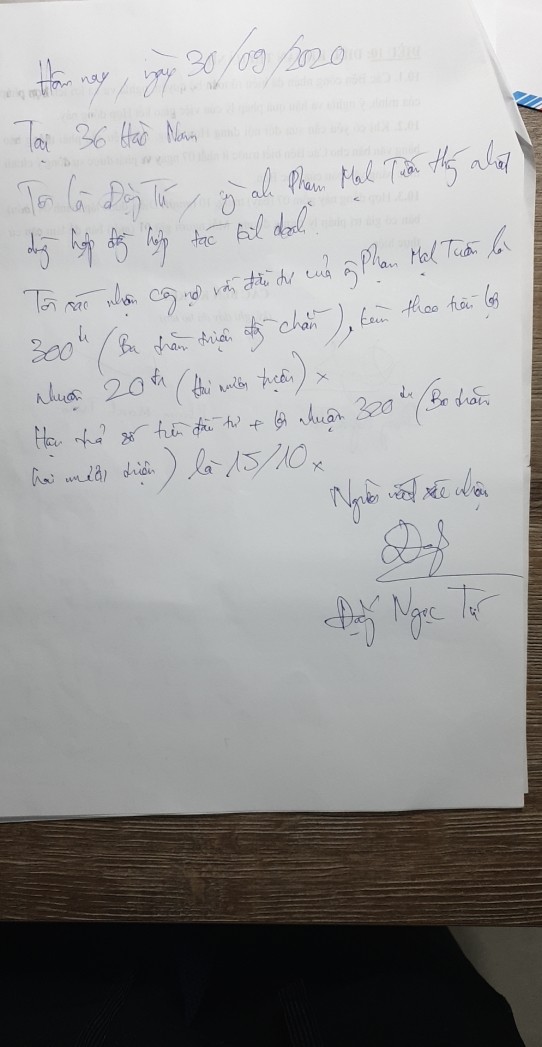 Hôm nay, ngày 30/09/2020
Tại 36 Hào Nam
Tôi là Đặng Tú, và anh Phạm Mạnh Tuấn thống nhất
dừng hợp đồng hợp tác kinh doanh.
Tôi xác nhận công nợ vốn đầu tư của ông Phạm Mạnh Tuấn là
300 tr (Ba trăm triệu đồng chẵn), kèm theo tiền lợi
nhuận 20 tr (Hai mươi triệu) x
Hạn trả số tiền đầu tư + lợi nhuận 320 tr (Ba trăm
hai mươi triệu) là 15/10 x
Người xác nhận
Đặng Ngọc Tú